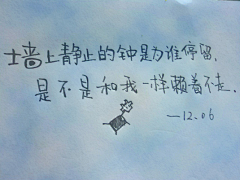 墙上静止的钟是为谁停留,
是不是和我一样懒着不走.
—12.06